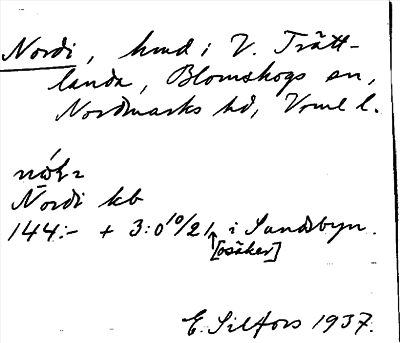 Nordi, hmd i V. Trätt-
landa, Blomskogs sn,
Nordmarks hd, Vrml l.
Nordi kb
144:- + 3:0 10/21 i Sandsbyn.
[osäker]
E. Silfors 1937.